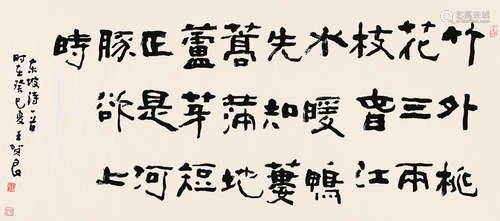 竹外桃
花三兩
枝春江
水暖鴨
先知蔞
蒿蒲地
蘆芽短
正是河
豚欲上
時
东坡诗一首
时在癸巳夏王贺良